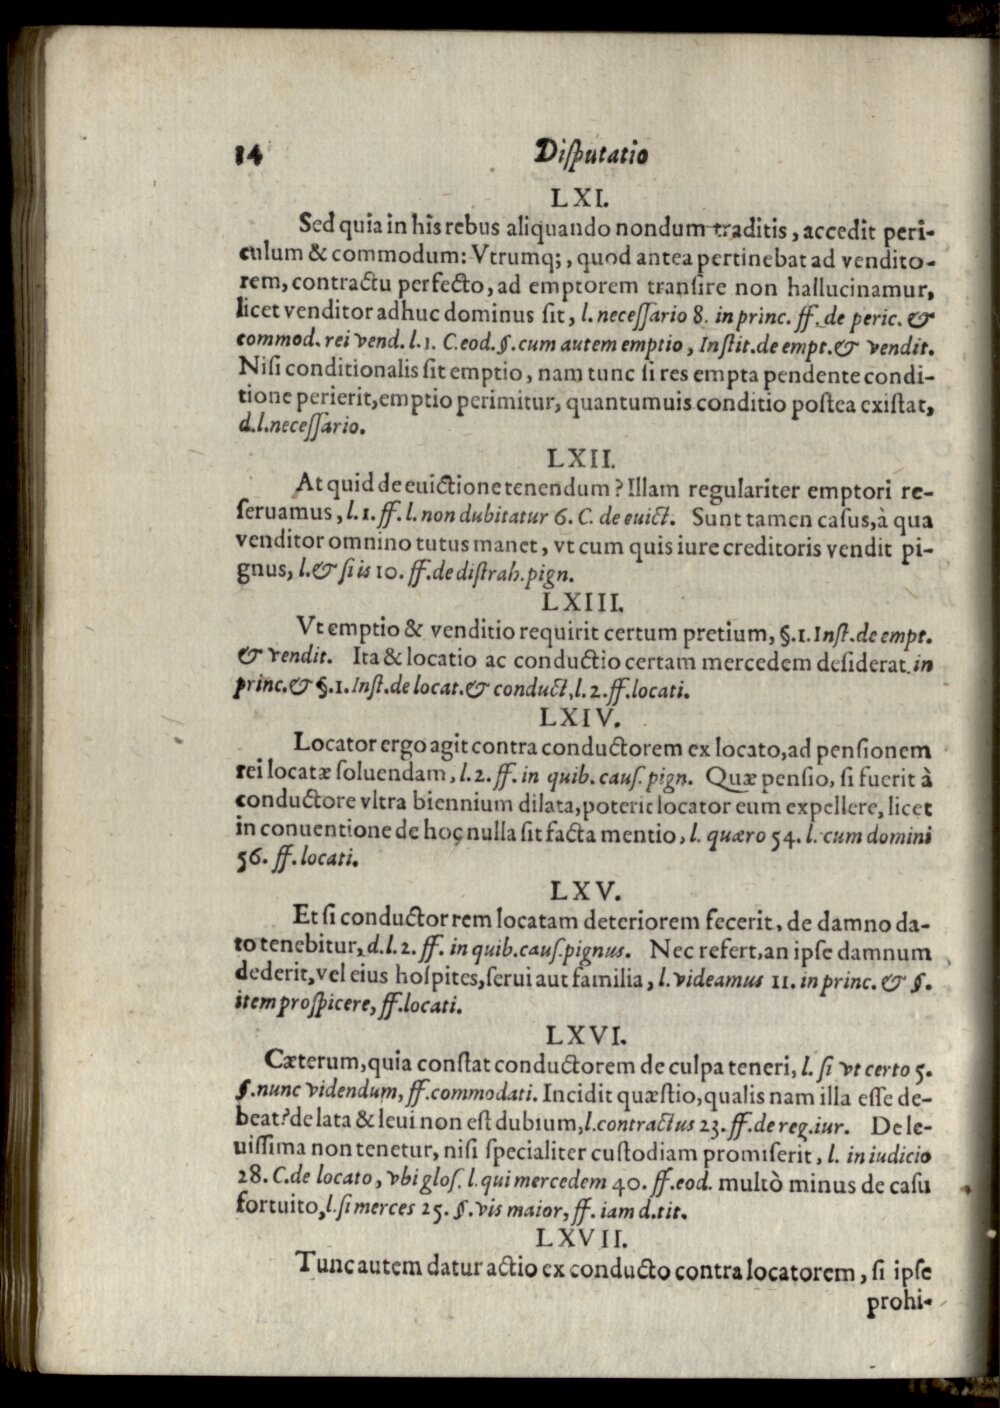 14 Disputatio
LXI.
Sed quia in his rebus aliquando nondum traditis, accedit peri-
culum & commodum: Vtrumq;, quod antea pertinebat ad vendito-
rem, contractu perfecto, ad emptorem transire non hallucinamur,
licet venditor adhuc dominus sit, l. necessario 8. in princ. ff. de peric. &
commod. rei vend. l. 1. C. eod. §. cum autem emptio, Instit. de empt. & vendit.
Nisi conditionalis sit emptio, nam tunc si res empta pendente condi-
tione perierit, emptio perimitur, quantumuis conditio postea existat,
d. l. necessario.
LXII.
At quid de euictione tenendum? Illam regulariter emptori re-
seruamus, l. 1. ff. l. non dubitatur 6. C. de euict. Sunt tamen casus, à qua
venditor omnino tutus manet, vt cum quis iure creditoris vendit pi-
gnus, l. & si is 10. ff. de distrah. pign.
LXIII.
Vt emptio & venditio requirit certum pretium, §. 1. Inst. de empt.
& vendit. Ita & locatio ac conductio certam mercedem desiderat. in
princ. & §. 1. Inst. de locat. & conduct, l. 2. ff. locati.
LXIV.
Locator ergo agit contra conductorem ex locato, ad pensionem
rei locatæ soluendam, l. 2. ff. in quib. caus. pign. Quæ pensio, si fuerit à
conductore vltra biennium dilata, poterit locator eum expellere, licet
in conuentione de hoc nulla sit facta mentio, l. quæro 54. l. cum domini
56. ff. locati.
LXV.
Et si conductor rem locatam deteriorem fecerit, de damno da-
to tenebitur, d. l. 2. ff. in quib. caus. pignus. Nec refert, an ipse damnum
dederit, vel eius hospites, serui aut familia, l. videamus 11. in princ. & §.
item prospicere, ff. locati.
LXVI.
Cæterum, quia constat conductorem de culpa teneri, l. si vt certo 5.
§. nunc videndum, ff. commodati. Incidit quæstio, qualis nam illa esse de-
beat? de lata & leui non est dubium, l. contractus 23. ff. de reg. iur. De le-
uissima non tenetur, nisi specialiter custodiam promiserit, l. in iudicio
28. C. de locato, vbi glos. l. qui mercedem 40. ff. eod. multò minus de casu
fortuito, l. si merces 25. §. vis maior, ff. iam d. tit.
LXVII.
Tunc autem datur actio ex conducto contra locatorem, si ipse
prohi-